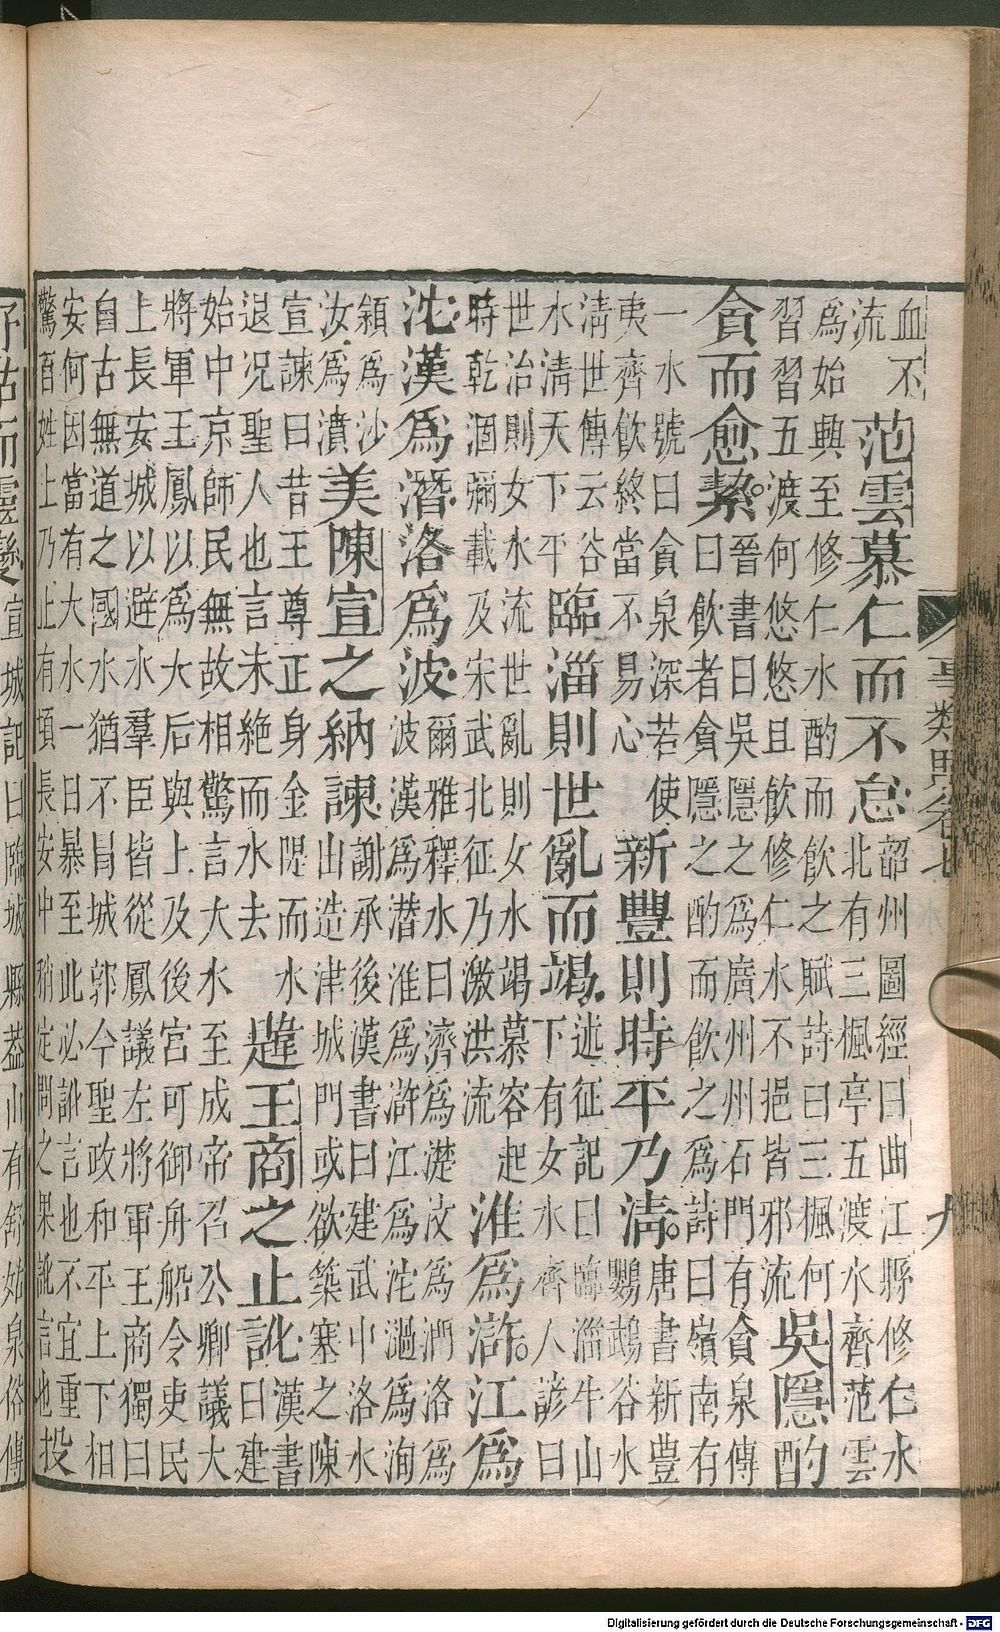 血不
流
范雲慕仁而不怠
韶州圖經曰曲江縣修仁水
北有三楓亭五渡水齊范雲
爲始興至修仁水酌而飲之賦詩曰三楓何
習習五渡何悠悠且飲修仁水不挹皆邪流
吳隱酌
貪而愈絜
晉書曰吳隱之爲廣州州石門有貪泉傳
曰飲者貪隱之酌而飲之爲詩曰嶺南有
一水號曰貪泉深若使
夷齊飲終當不易心
新豐則時平乃淸
唐書新豐
鸚鵡谷水
淸世傳云谷
水淸天下平
臨淄則世亂而竭
述征記曰臨淄牛山
下有女水齊人諺曰
世治則女水流世亂則女水竭慕容起
時乾涸彌載及宋武北征乃激洪流
淮爲滸江爲
沱漢爲潛洛爲波
爾雅釋水曰濟爲濋汶爲洛爲
波漢爲潛淮爲滸江爲沱濄爲洵
潁爲沙
汝爲濆
美陳宣之納諫
謝承後漢書曰建武中洛水
出造津城門或欲築塞之陳
宣諫曰昔王尊正身金隄而水
退況聖人也言未絶而水去
韙王商之止訛
漢書
曰建
始中京師民無故相驚言大水至成帝召公卿議大
將軍王鳳以爲大后與上及後宮可御舟船令吏民
上長安城以避水羣臣皆從鳳議左將軍王商獨曰
自古無道之國水猶不冐城郭今聖政和平上下相
安何因當有大水一日暴至此必訛言也不宜重
驚百姓上乃止有頃長安中稍定問之果訛言也
投
事類賦卷七
九
而靈變
宣城記曰臨城縣葢山有舒姑泉俗傳
Digitalisierung gefördert durch die Deutsche Forschungsgemeinschaft - DFG